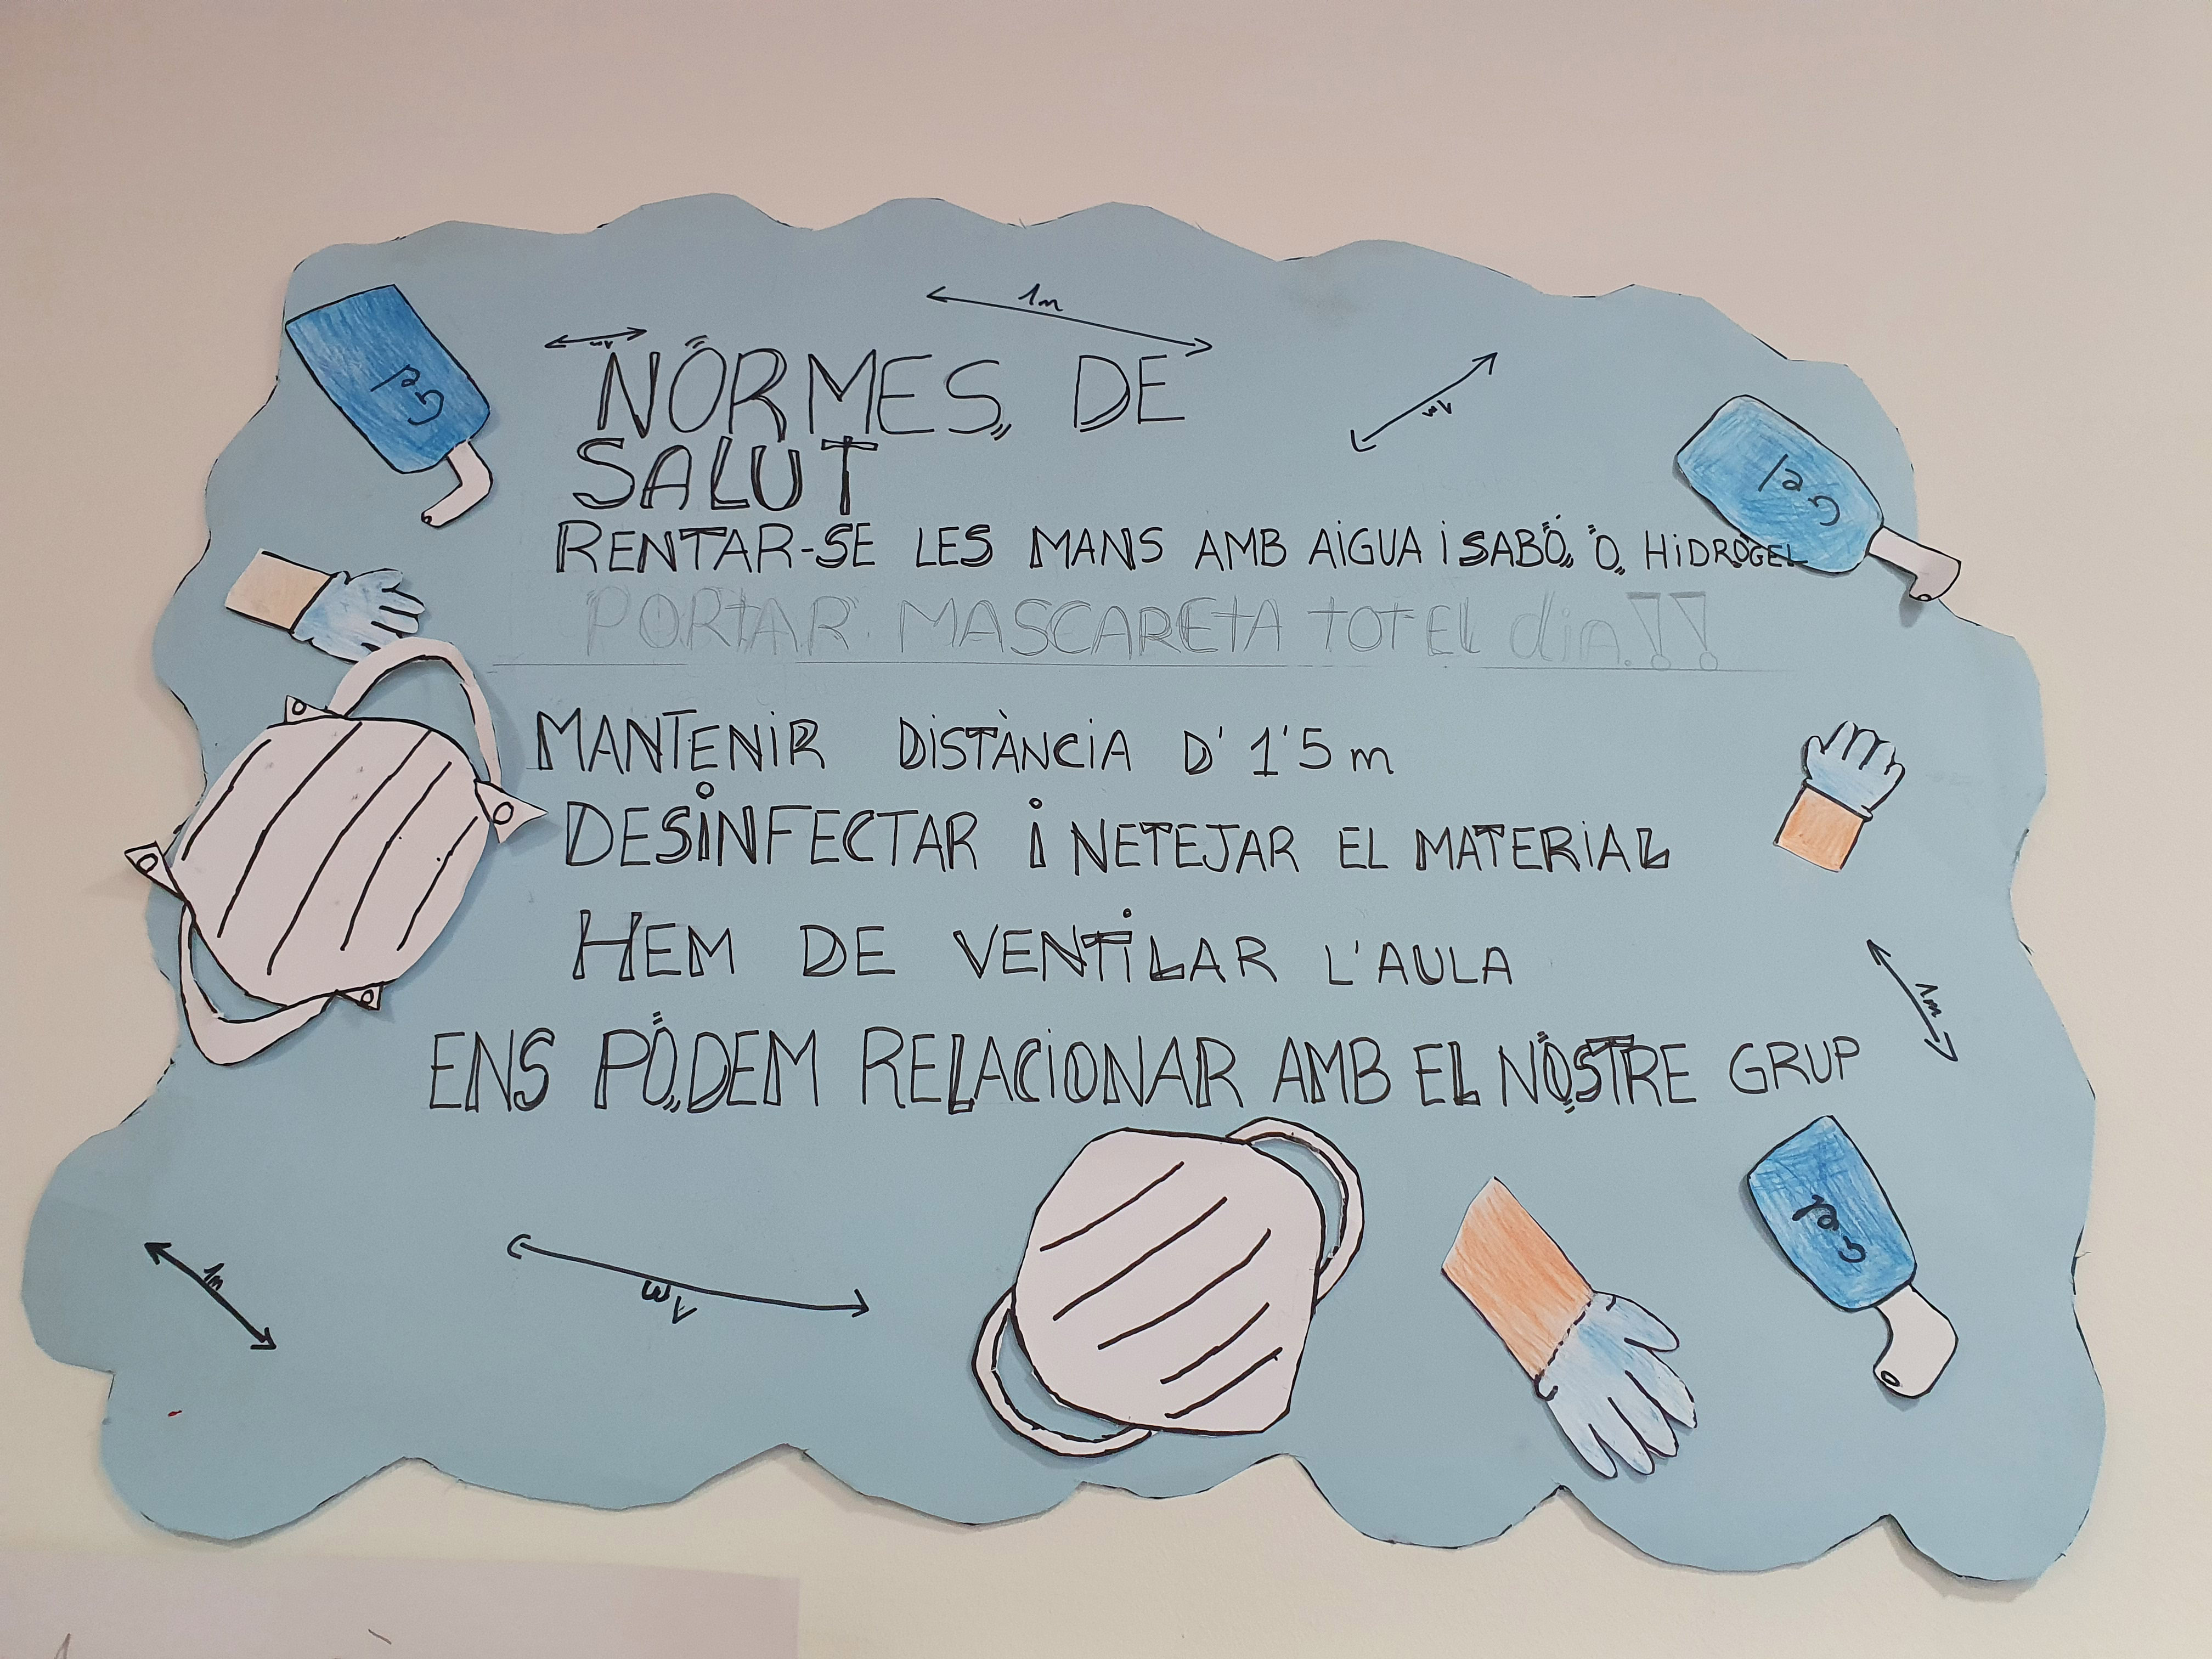 1m
1m
NORMES DE
1m
SALUT
Gel
Gel
RENTAR-SE LES MANS AMB AIGUA I SABÓ, O HIDROGEL
PORTAR MASCARETA TOT EL dia.!!
MANTENIR DISTÀNCIA D' 1'5 m
DESINFECTAR I NETEJAR EL MATERIAL
HEM DE VENTILAR L'AULA
1m
ENS PODEM RELACIONAR AMB EL NOSTRE GRUP
Gel
1m
1m